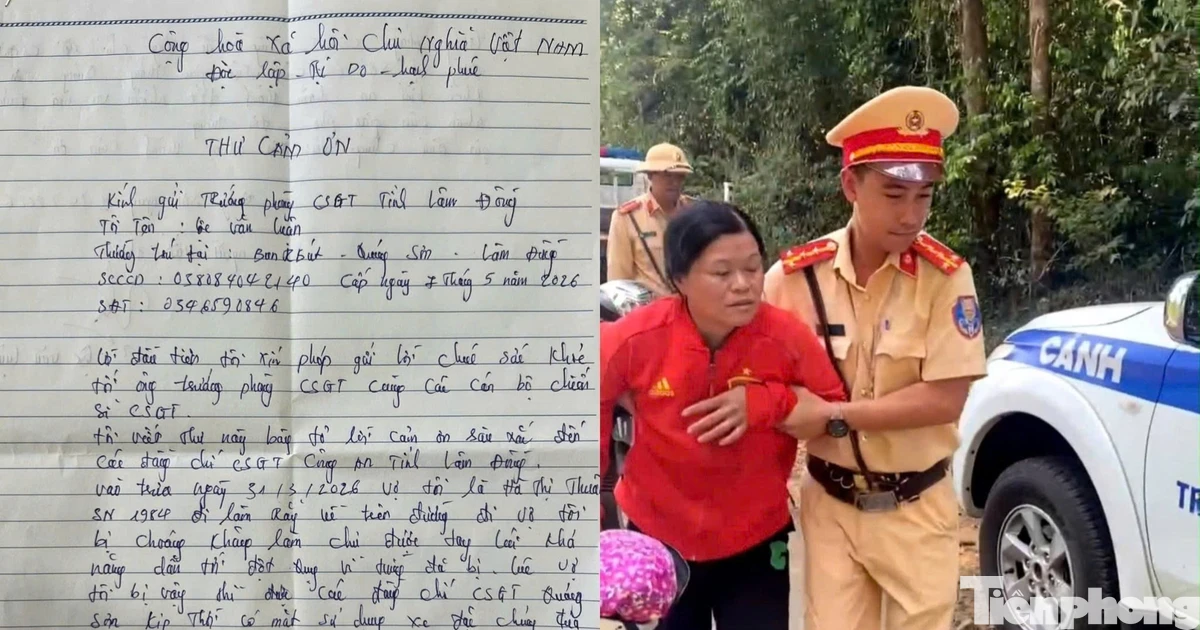 Cộng hoà xã hội chủ nghĩa Việt NAM
Độc lập - Tự Do - hạnh phúc
THƯ CẢM ƠN
Kính gửi Trưởng phòng CSGT Tỉnh Lâm Đồng
Tôi Tên : Be văn Luân
Thường trú tại : Bon - Quảng Sơn - Lâm Đồng
SCCCD : 038084042140 Cấp ngày 7 Tháng 5 năm 2026
SĐT : 0346590846
Lời đầu tiên tôi xin phép gửi lời chúc sức khỏe
tới ông trưởng phòng CSGT cùng các cán bộ chiến
sĩ CSGT.
tôi viết Thư này bày tỏ lời cảm ơn sâu sắc đến
các đồng chí CSGT Công An Tỉnh Lâm Đồng.
vào trưa ngày 31/3/2026 vợ tôi là Thị Thuỷ
SN 1984 đi làm Rẫy về trên đường đi vợ tôi
bị choáng không làm chủ được tay lái khả
năng dẫn tới đột quỵ vì trước đó bị. lúc vợ
tôi bị vậy thì được các đồng chí CSGT Quảng
Sơn kịp Thời có mặt sử dụng xe đặc chủng đưa
adidas
CẢNH
TR
Tiền phong